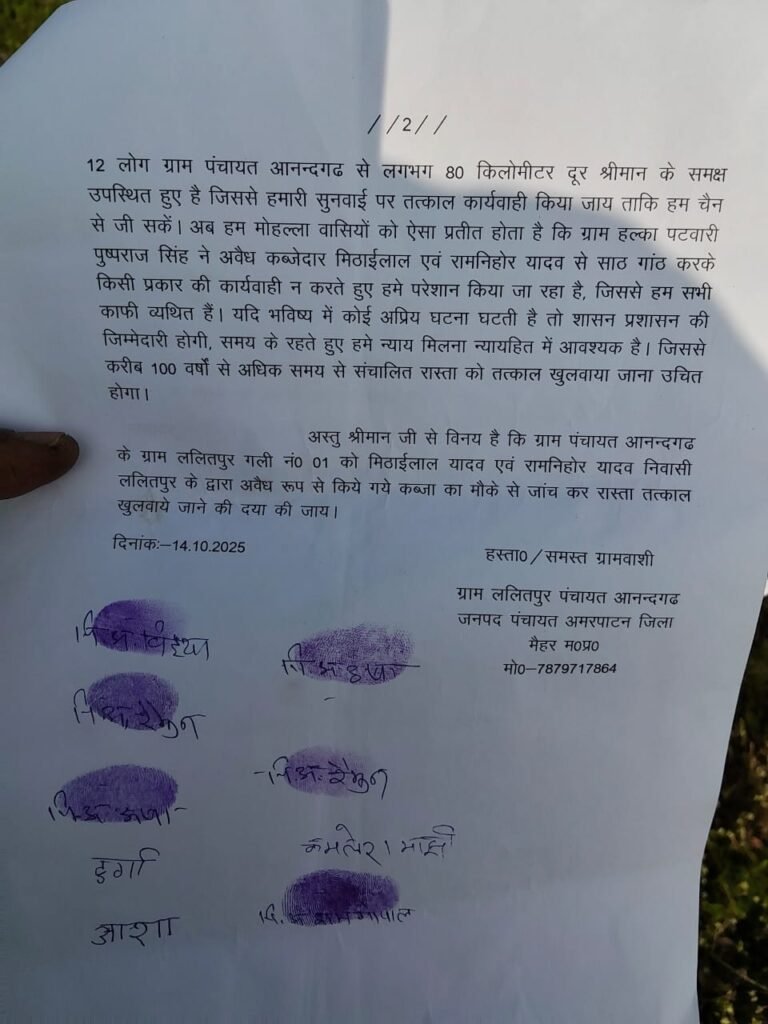 //2//
12 लोग ग्राम पंचायत आनन्दगढ से लगभग 80 किलोमीटर दूर श्रीमान के समक्ष
उपस्थित हुए है जिससे हमारी सुनवाई पर तत्काल कार्यवाही किया जाय ताकि हम चैन
से जी सकें। अब हम मोहल्ला वासियों को ऐसा प्रतीत होता है कि ग्राम हल्का पटवारी
पुष्पराज सिंह ने अवैध कब्जेदार मिठाईलाल एवं रामनिहोर यादव से साठ गांठ करके
किसी प्रकार की कार्यवाही न करते हुए हमे परेशान किया जा रहा है, जिससे हम सभी
काफी व्यथित हैं। यदि भविष्य में कोई अप्रिय घटना घटती है तो शासन प्रशासन की
जिम्मेदारी होगी, समय के रहते हुए हमे न्याय मिलना न्यायहित में आवश्यक है। जिससे
करीब 100 वर्षो से अधिक समय से संचालित रास्ता को तत्काल खुलवाया जाना उचित
होगा।
अस्तु श्रीमान जी से विनय है कि ग्राम पंचायत आनन्दगढ
के ग्राम ललितपुर गली नं0 01 को मिठाईलाल यादव एवं रामनिहोर यादव निवासी
ललितपुर के द्वारा अवैध रूप से किये गये कब्जा का मौके से जांच कर रास्ता तत्काल
खुलवाये जाने की दया की जाय।
दिनांकः–14.10.2025
हस्ता0/समस्त ग्रामवाशी
ग्राम ललितपुर पंचायत आनन्दगढ
जनपद पंचायत अमरपाटन जिला
मैहर म0प्र0
मो0–7879717864
नि.अ.
नि.अ.
नि.अ.
नि.अ.
नि.अ.
दुर्गा
आशा